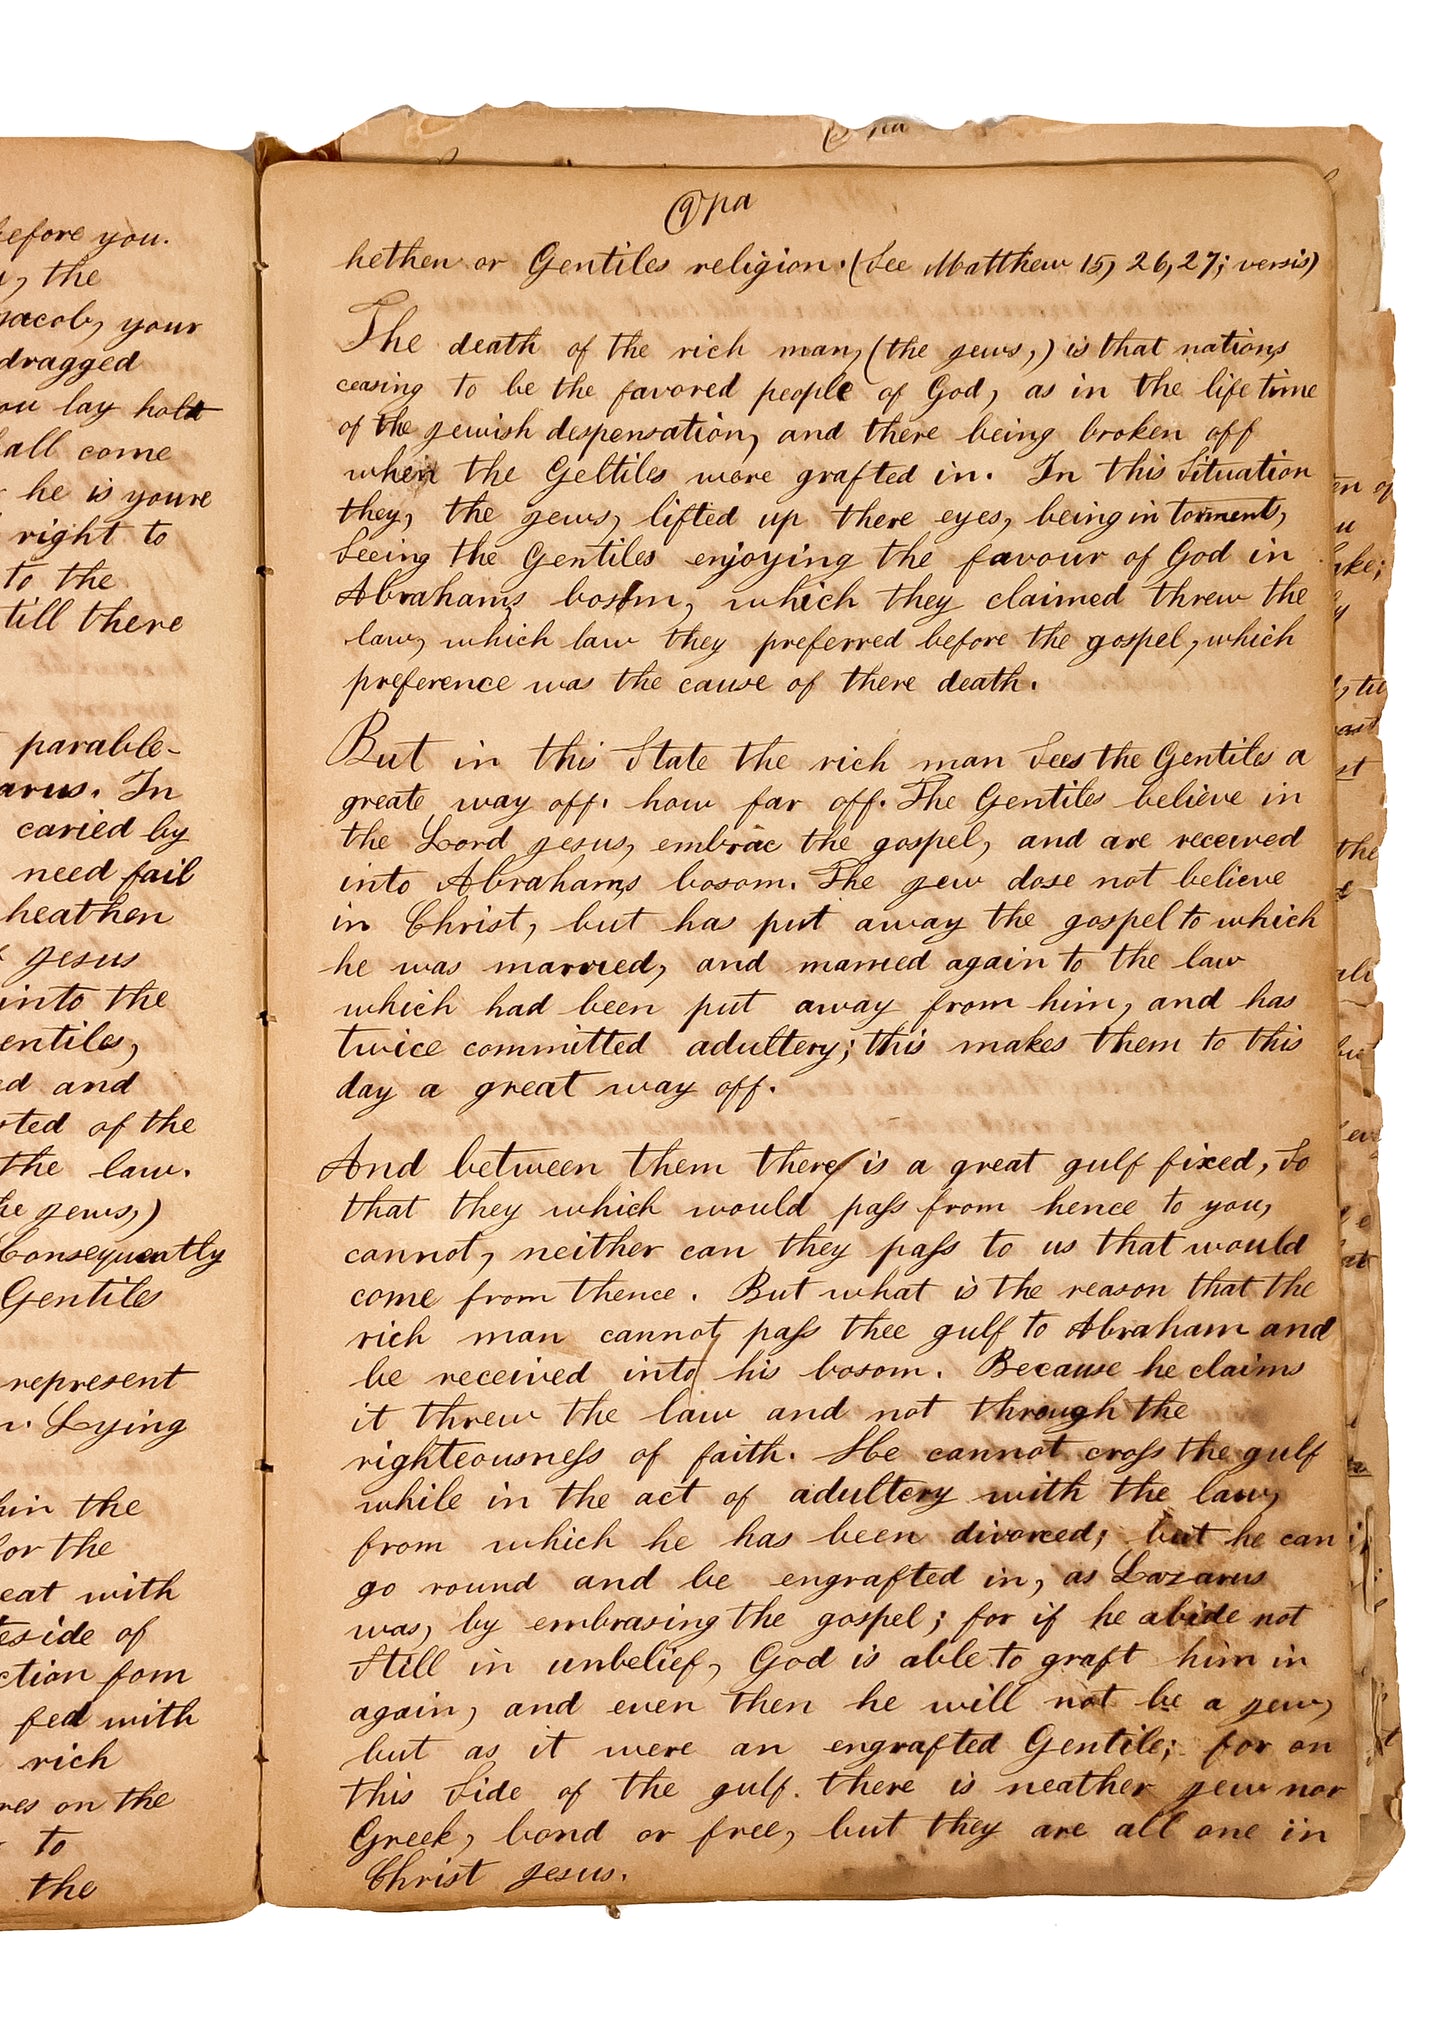 before you.
, the
Jacob, your
dragged
ou lay hold
all come
he is youre
right to
to the
till there
parable-
arus. In
caried by
need fail
heathen
Jesus
into the
entiles,
ed and
sted of the
the law.
he Jews,)
Consequently
Gentiles
represent
n. Lying
hin the
for the
eat with
teside of
ction fom
fed with
rich
res on the
to
the
9 pa
hethen or Gentiles religion. (See Matthew 15, 26, 27; versis)
The death of the rich man, (the Jews,) is that nations
ceasing to be the favored people of God, as in the life time
of the Jewish despensation, and there being broken off
when the Geltiles were grafted in. In this Situation
they, the Jews, lifted up there eyes, being in torments,
Seeing the Gentiles enjoying the favour of God in
Abrahams bosom, which they claimed threw the
law, which law they preferred before the gospel, which
preference was the cause of there death.
But in this State the rich man Sees the Gentiles a
greate way off. how far off. The Gentiles believe in
the Lord Jesus, embrac the gospel, and are received
into Abrahams bosom. The Jew dose not believe
in Christ, but has put away the gospel to which
he was married, and married again to the law
which had been put away from him, and has
twice committed adultery; this makes them to this
day a great way off.
And between them there is a great gulf fixed, So
that they which would pass from hence to you,
cannot, neither can they pass to us that would
come from thence. But what is the reason that the
rich man cannot pass thee gulf to Abraham and
be received into his bosom. Because he claims
it threw the law and not through the
righteousness of faith. He cannot cross the gulf
while in the act of adultery with the law,
from which he has been divorced; but he can
go round and be engrafted in, as Lazarus
was, by embrasing the gospel; for if he abide not
Still in unbelief, God is able to graft him in
again, and even then he will not be a Jew,
but as it were an engrafted Gentile; for on
this Side of the gulf. there is neather Jew nor
Greek, bond or free, but they are all one in
Christ Jesus.